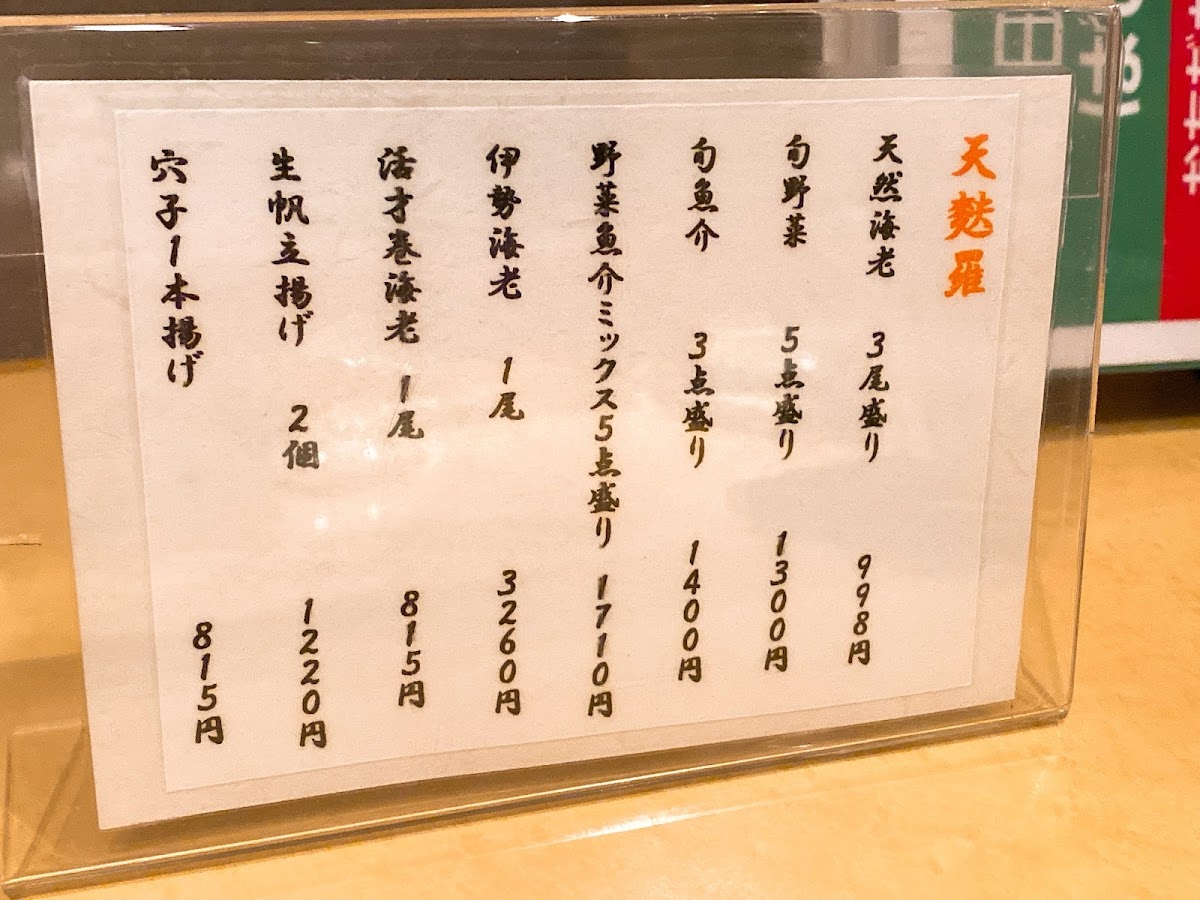 天麩羅
天然海老 3尾盛り 998円
旬野菜 5点盛り 1300円
旬魚介 3点盛り 1400円
野菜魚介ミックス5点盛り 1710円
伊勢海老 1尾 3260円
活才巻海老 1尾 815円
生帆立揚げ 2個 1220円
穴子1本揚げ 815円